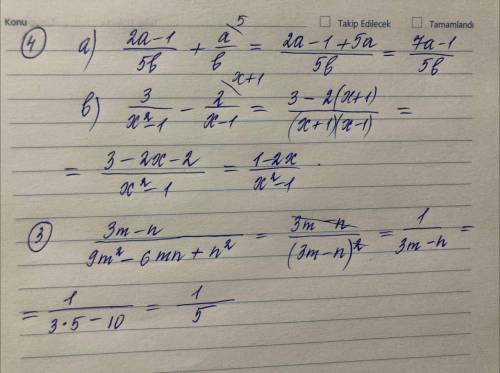 Konu
Takip Edilecek Tamamlandı
④ a) (2a-1)/(5b) + a/b \5 = (2a-1+5a)/(5b) = (7a-1)/(5b)
b) 3/(x²-1) - 2/(x-1) \x+1 = (3-2(x+1))/((x+1)(x-1)) =
= (3-2x-2)/(x²-1) = (1-2x)/(x²-1).
③ (3m-n)/(9m²-6mn+n²) = (3m-n)/(3m-n)² = 1/(3m-n) =
= 1/(3·5-10) = 1/5